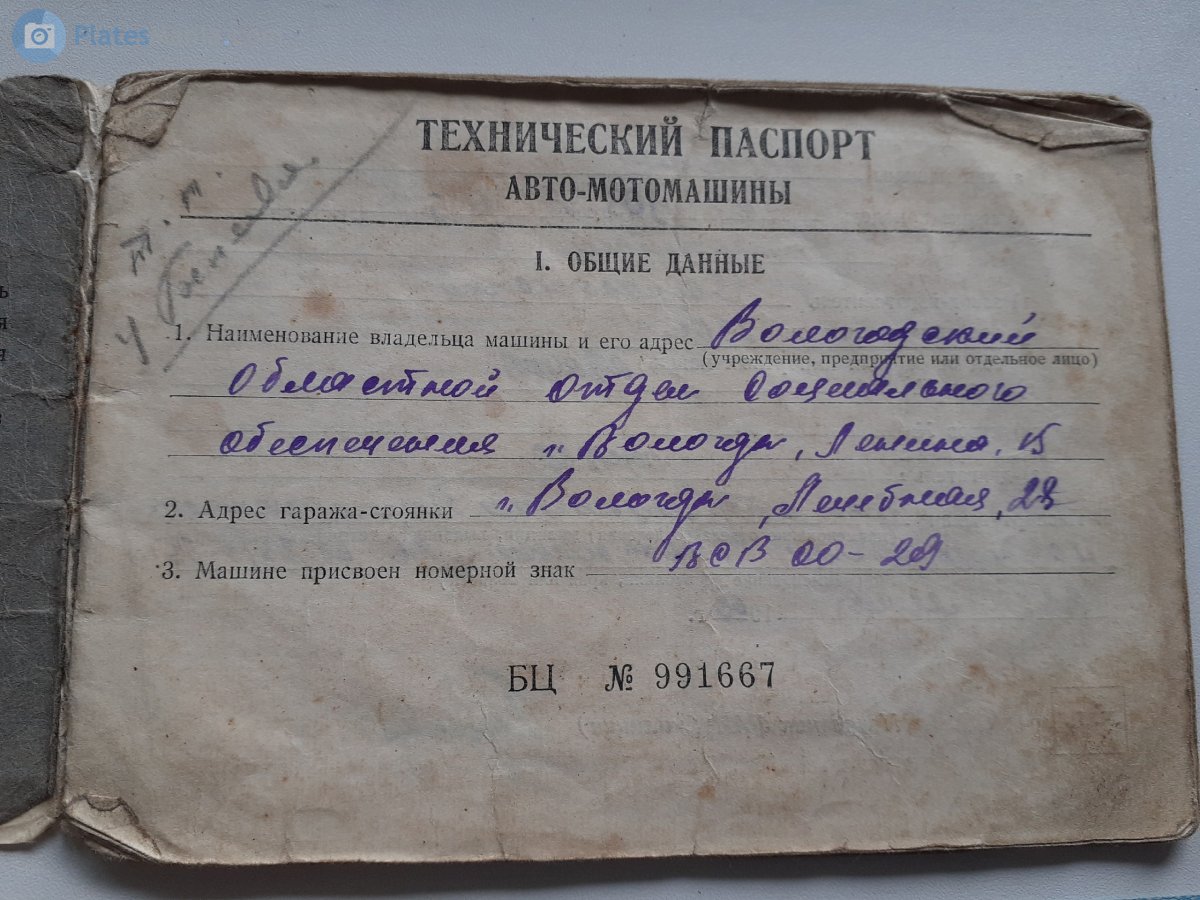 Plates
ТЕХНИЧЕСКИЙ ПАСПОРТ
АВТО-МОТОМАШИНЫ
I. ОБЩИЕ ДАННЫЕ
1. Наименование владельца машины и его адрес Вологодский
(учреждение, предприятие или отдельное лицо)
Областной отдел социального
обеспечения г. Вологда, Ленина, 15
2. Адрес гаража-стоянки г. Вологда, Лечебная, 28
3. Машине присвоен номерной знак ВОВ 00-29
БЦ № 991667